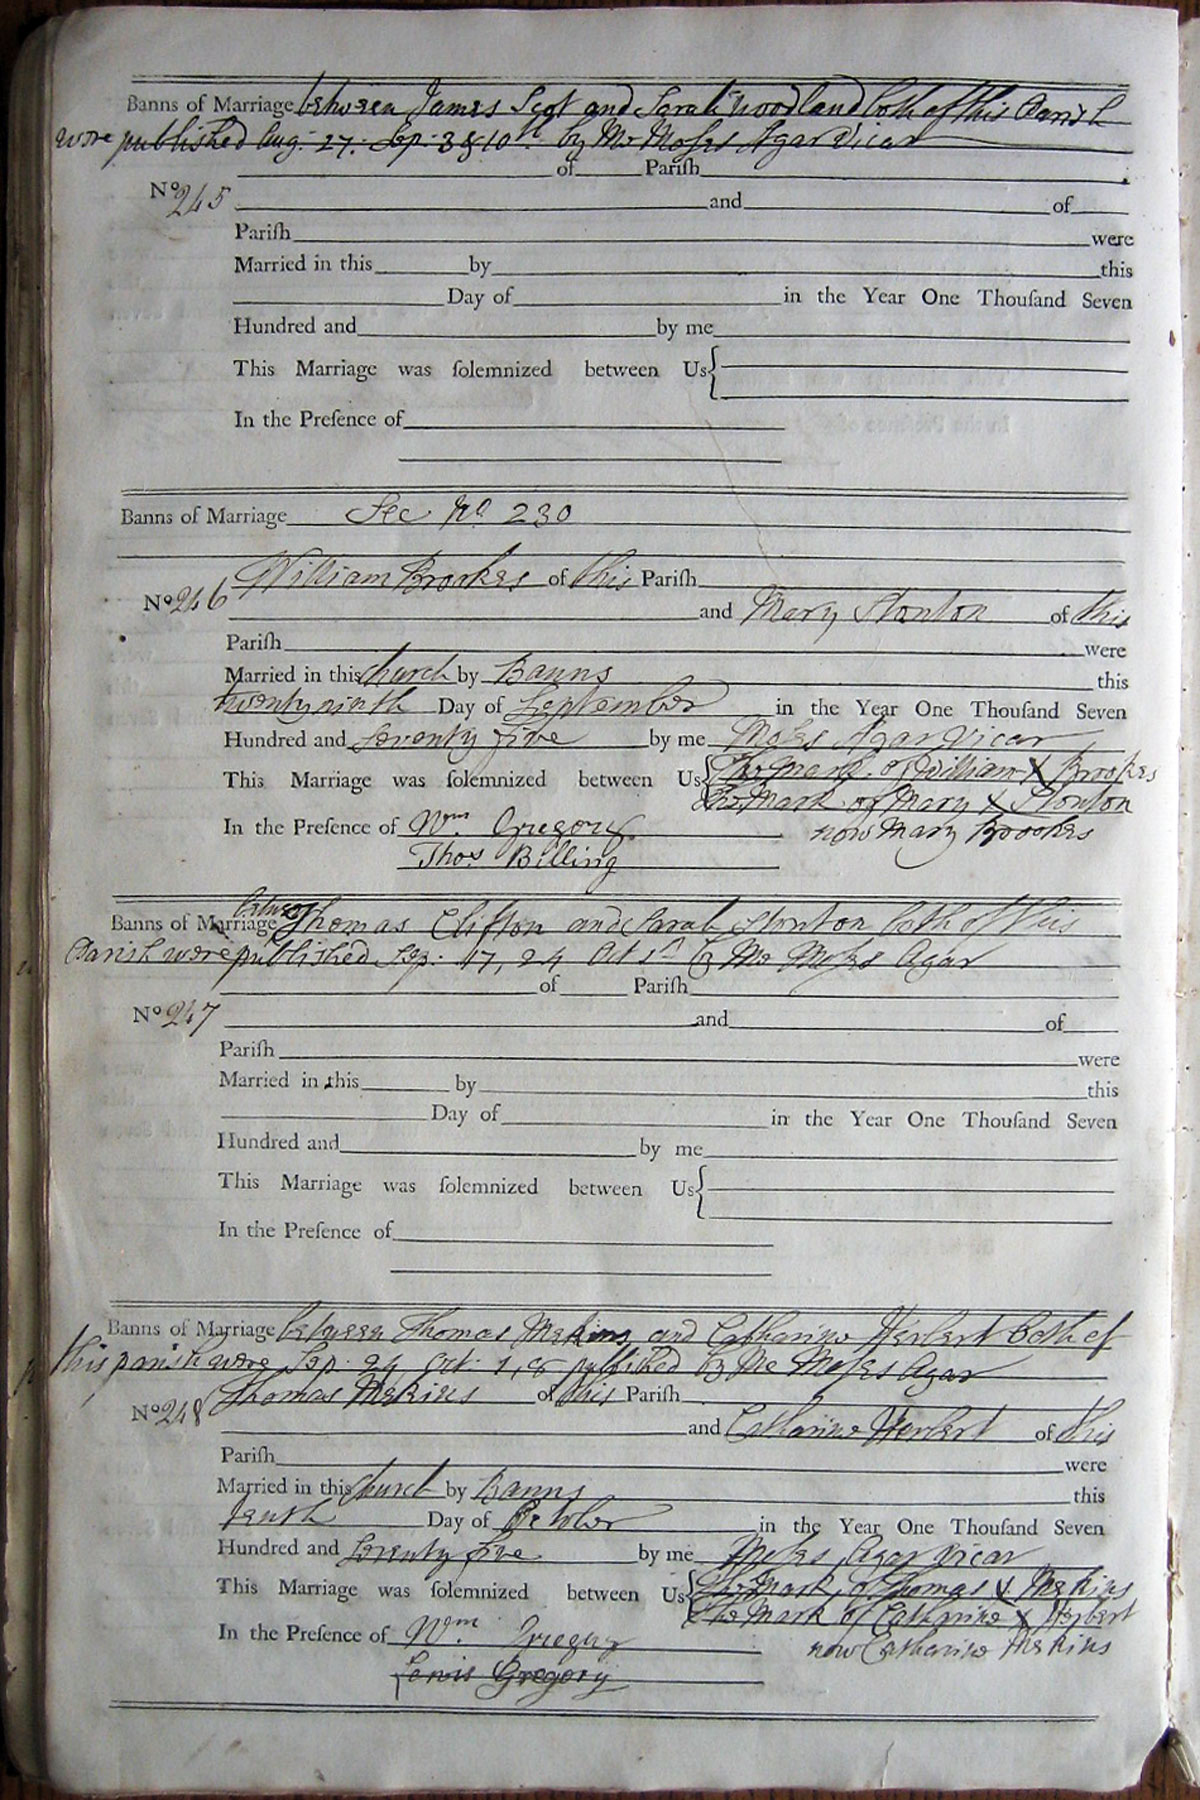 Banns of Marriage between James Scot and Sarah Woodland both of this Parish
were published Aug. 27. Sep. 3 & 10th by Me Moses Agar Vicar
of Pariſh
No 245
and of
Pariſh were
Married in this by this
Day of in the Year One Thouſand Seven
Hundred and by me
This Marriage was ſolemnized between Us
In the Preſence of
Banns of Marriage See No 230
William Brookes of this Pariſh
No 246
and Mary Stonton of this
Pariſh were
Married in this church by Banns this
twenty ninth Day of September in the Year One Thouſand Seven
Hundred and Seventy five by me Moses Agar Vicar
This Marriage was ſolemnized between Us The Mark of William X Brookes
The Mark of Mary X Stonton
In the Preſence of Wm Gregory now Mary Brookes
Thos Billing
between
Banns of Marriage Thomas Clifton and Sarah Stonton both of this
Parish were published Sep. 17, 24 Oct 1st by Me Moses Agar
of Pariſh
No 247
and of
Pariſh were
Married in this by this
Day of in the Year One Thouſand Seven
Hundred and by me
This Marriage was ſolemnized between Us
In the Preſence of
Banns of Marriage between Thomas Mekins and Catharine Herbert both of
this parish were Sep. 24 Oct. 1, 8 published by Me Moses Agar
Thomas Mekins of this Pariſh
No 248
and Catharine Herbert of this
Pariſh were
Married in this church by Banns this
tenth Day of October in the Year One Thouſand Seven
Hundred and Seventy five by me Moses Agar Vicar
This Marriage was ſolemnized between Us The Mark of Thomas X Mekins
The Mark of Catharine X Herbert
In the Preſence of Wm Gregory now Catharine Mekins
Lewis Gregory